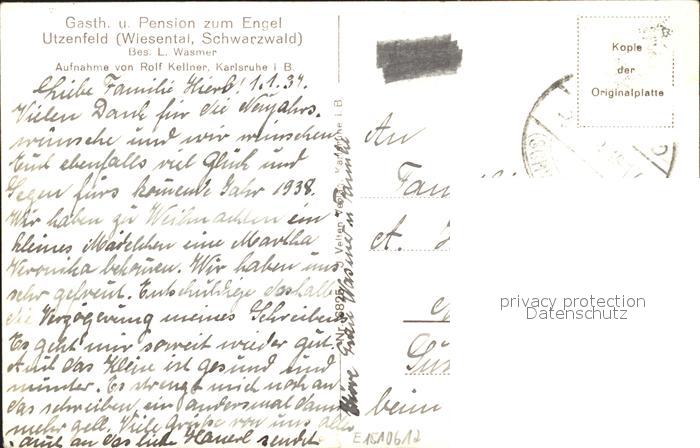 Gasth. u. Pension zum Engel
Utzenfeld (Wiesental, Schwarzwald)
Bes. L. Wasmer
Aufnahme von Rolf Kellner, Karlsruhe i B.
Liebe Familie Hierl! 1.1.37.
Vielen Dank für die Neujahrs-
wünsche und wir wünschen
Euch ebenfalls viel Glück und
Segen fürs komende Jahr 1938.
Wir haben zu Weihnachten ein
kleines Mädelchen eine Martha
Veronika bekomen. Wir haben uns
sehr gefreut. Entschuldige deshalb
die Verzögerung meines Schreibens
Es geht mir soweit wieder gut.
Auch das Kleine ist gesund und
munter. Es strengt mich noch an
das schreiben, ein andersmal dann
mehr gell. Viele Grüße von uns allen
auch an das liebe
Eure Wasmer u. Familie
Karlsruhe i. B
Kopie
der
Originalplatte
An
Fam
A.
beim
privacy protection
Datenschutz
E15A0612